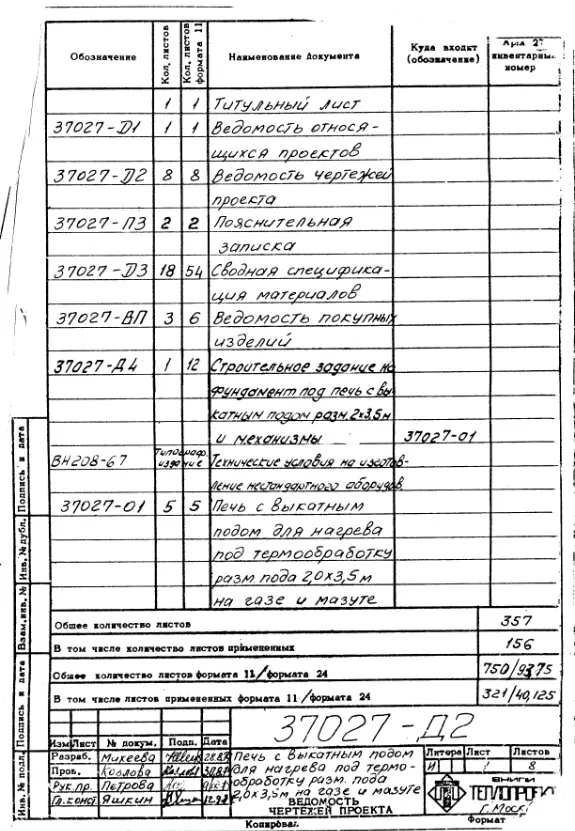 Обозначение Кол. листов Кол. листов формата 11 Наименование документа Куда входит (обозначение) инвентарн. номер
1 1 Титульный лист
37027-Д1 1 1 Ведомость относя-
щихся проектов
37027-Д2 8 8 Ведомость чертежей
проекта
37027-ПЗ 2 2 Пояснительная
записка
37027-Д3 18 54 Сводная специфика-
ция материалов
37027-ВП 3 6 Ведомость покупных
изделий
37027-Д4 1 12 Строительное задание на
фундамент под печь с вы-
катным подом разм. 2х3,5м
и механизмы 37027-01
ВН208-67 Типограф. издание Технические условия на изготов-
ление нестандартного оборудов.
37027-01 5 5 Печь с выкатным
подом для нагрева
под термообработку
разм. пода 2,0х3,5 м
на газе и мазуте
Общее количество листов 357
В том числе количество листов примененных 156
Общее количество листов формата 11/формата 24 750/93,75
В том числе листов примененных формата 11/формата 24 321/40,125
37027-Д2
Изм Лист № докум. Подп. Дата
Разраб. Михеева
Пров. Козлова
Рук.пр. Петрова
Гл.конст. Яшкин
Печь с выкатным подом
для нагрева под термо-
обработку разм. пода
2,0х3,5м на газе и мазуте
ВЕДОМОСТЬ
ЧЕРТЕЖЕЙ ПРОЕКТА
Литера Лист Листов
И 1 8
ВНИПИ
ТЕПЛОПРОЕКТ
г. Моск
Копировал
Формат
Подпись и дата
Инв. № дубл.
Взам. инв. №
Подпись и дата
Инв. № подл.